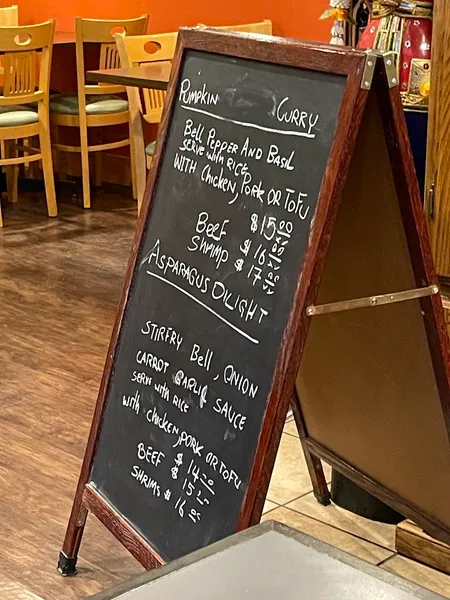 Pumpkin CURRY
Bell Pepper And Basil
serve with Rice
with Chicken, Pork or ToFu
$15.00
Beef $16.00
Shrimp $17.00
Asparagus Dilight
STIRFRY Bell, ONION
CARROT GARLIC SAUCE
SERVE with RICE
with chicken, pork or TOFU
$14.00
BEEF $15.00
SHRIMS $16.00